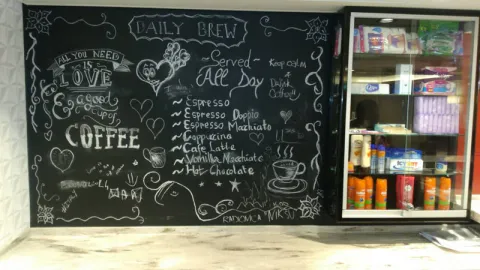 DAILY BREW
ALL YOU NEED
IS
LOVE
& a good
cup of
COFFEE
~Served~
All Day
Keep calm
&
Drink
Coffee!!
~ Espresso
~ Espresso Doppio
~ Espresso Machiato
~ Cappuccino
~ Cafe Latte
~ Vanilla Macchiato
~ Hot Chocolate
RADIONICA